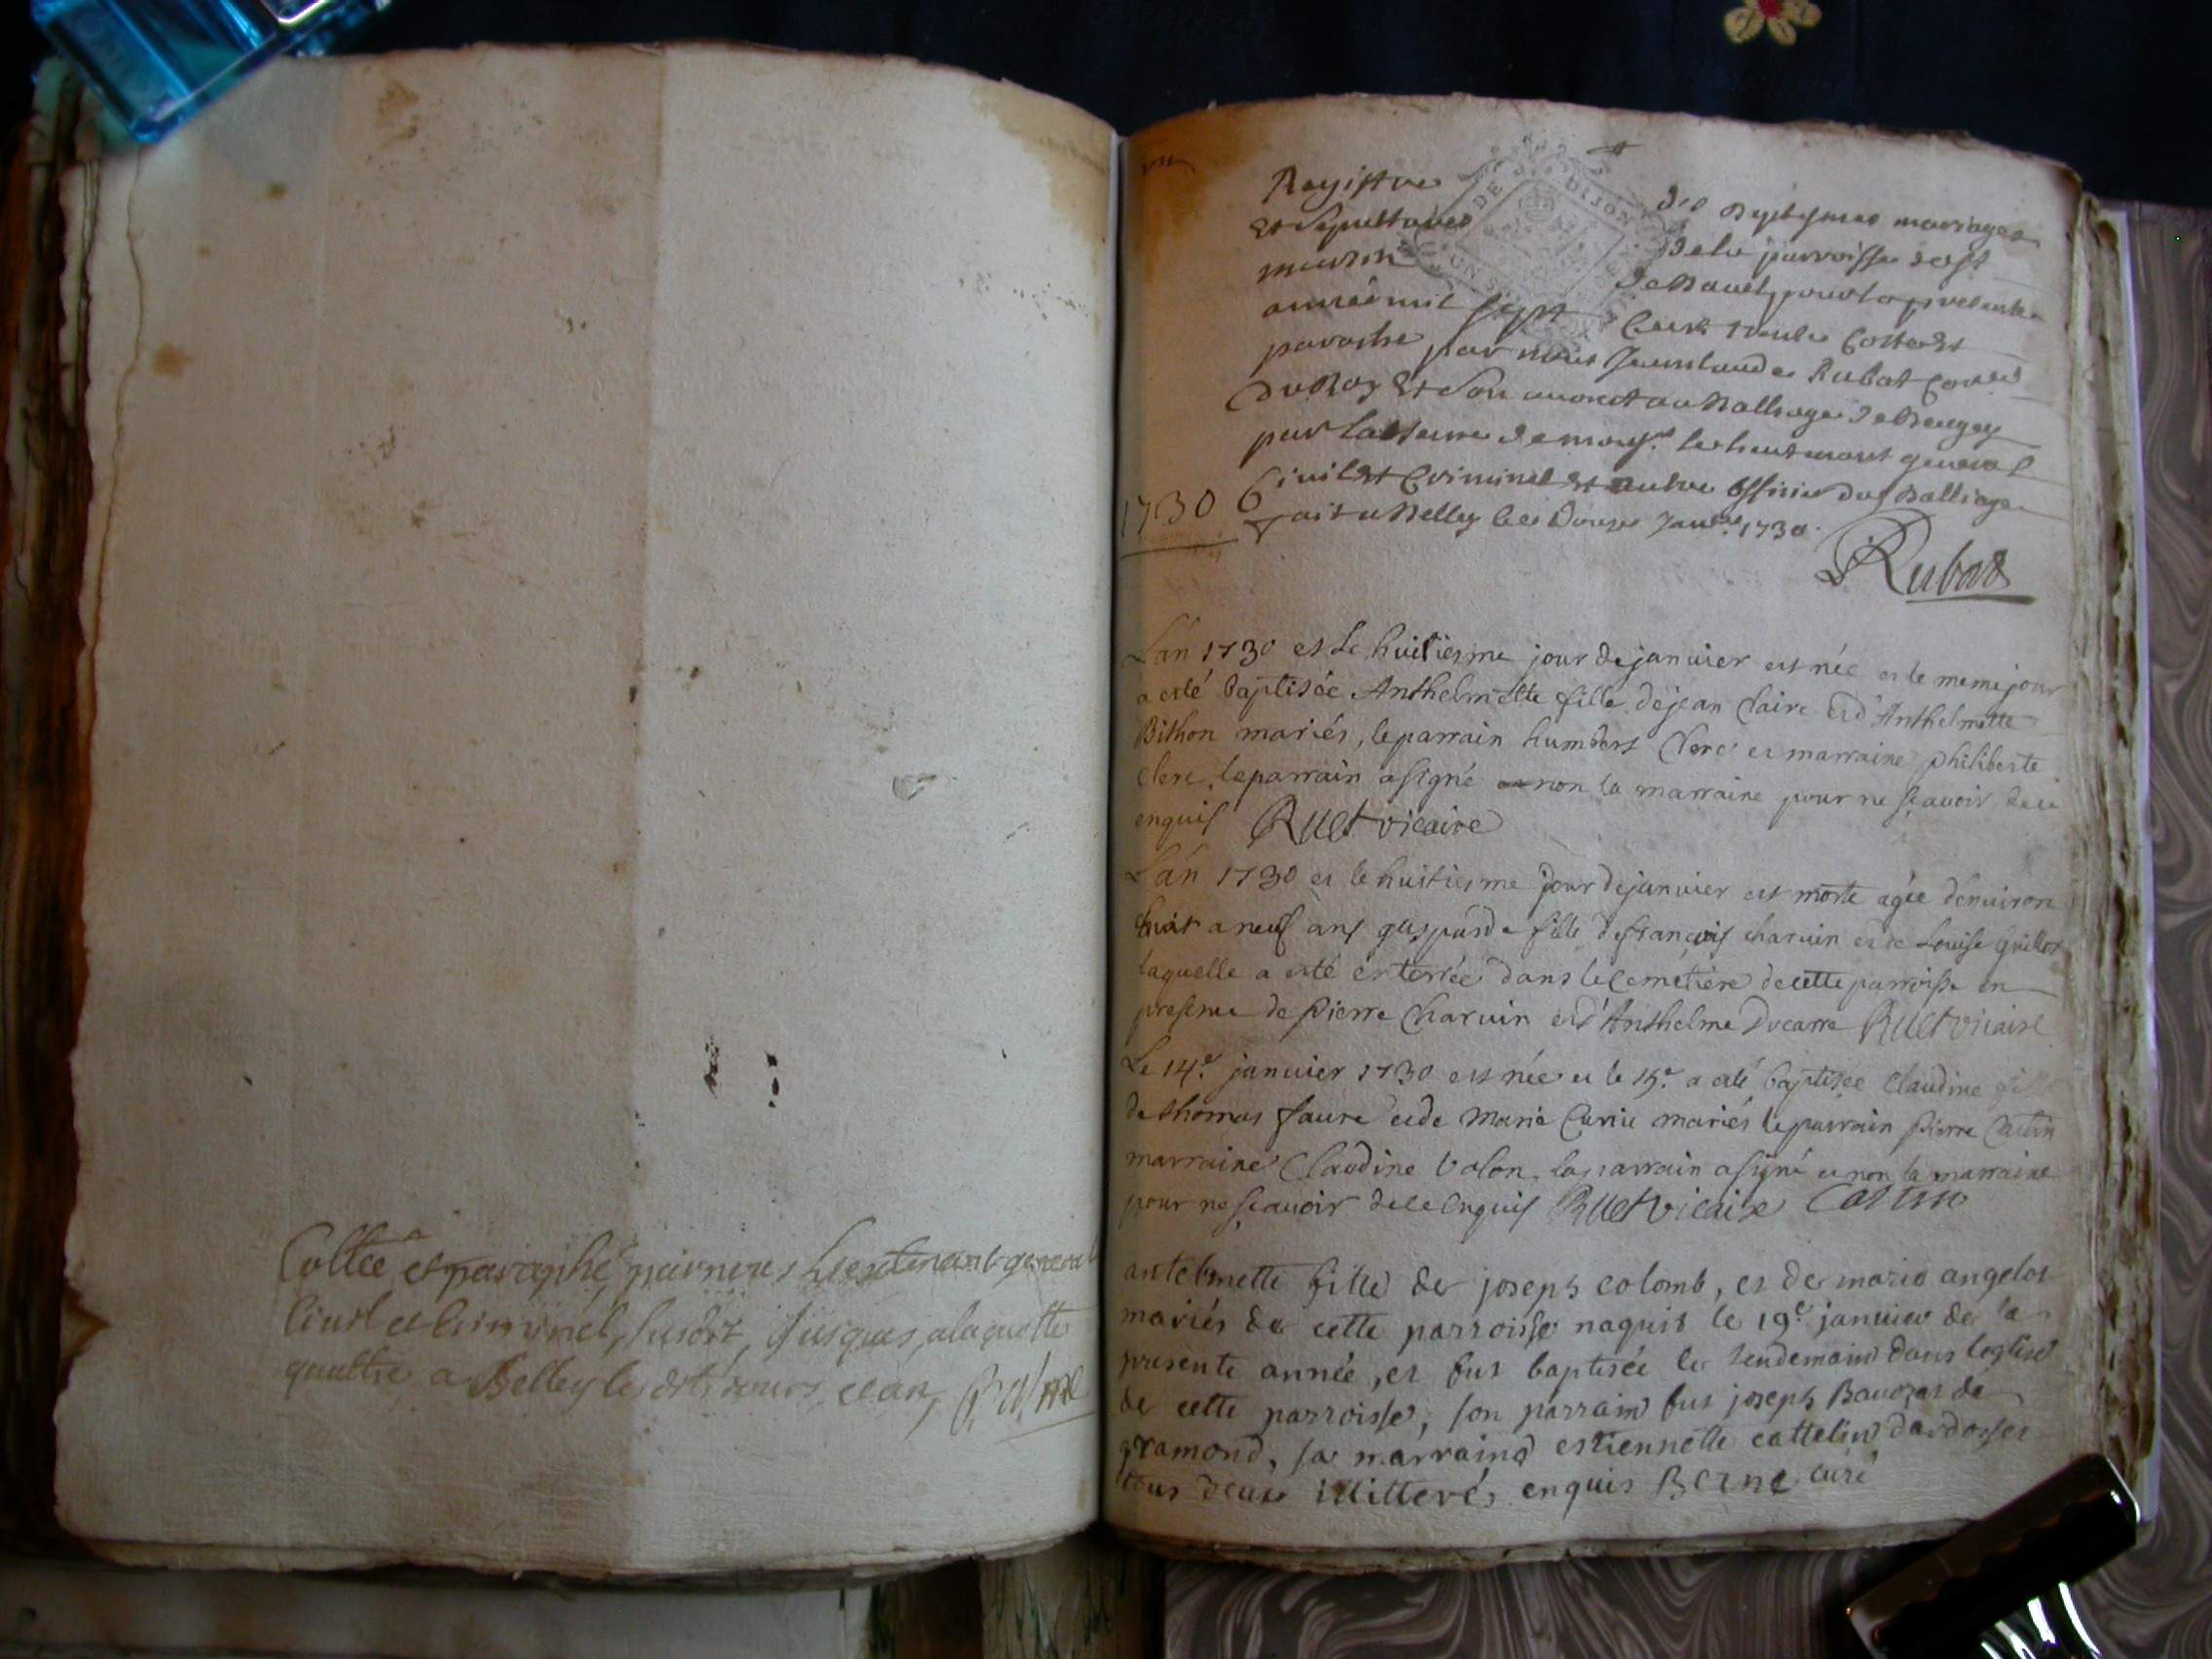 Cottée et paraphé par nous Lieutenant general
Civil et Criminel, susdit, jusques a laquelle
a Belley les dits jours, et an,
Registre des Baptesmes mariages
Et Sepultures de la parroisse de St
de pour la presente
année mil sept Cent trente Cotte Et
paraphe par nous Jean Claude Rubat
Du Roy Et Son avocat au Balliage de Beugey
par de monsr. le lieutenant general
Civil Et Criminel Et autre officier du Balliage
1730
fait a Belley le Douze Janv. 1730.
Rubat
DE DIJON
L'an 1730 et Le huitiesme jour de janvier est née et le meme jour
a esté baptisée Anthelmette fille de jean Claire et d'Anthelmette
Bithon mariés, le parrain humbert Clerc et marraine philiberte
Clerc, le parrain a signé non la marraine pour ne sçavoir de ce
enquis Ruet vicaire
L'an 1730 et le huitiesme jour de janvier est morte agée d'environ
huit a neuf ans gasparde fille de françois charvin et de Louise Guillot
laquelle a esté enterrée dans le Cemetiere de cette parroisse en
presence de Pierre Charvin et d'Anthelme Ducarre Ruet vicaire
Le 14e. janvier 1730 est née et le 15e. a esté baptisée Claudine fille
de thomas faure et de Marie mariés le parrain Pierre
marraine Claudine Volon, le parrain a signé et non la marraine
pour ne sçavoir de ce enquis Ruet vicaire
antelmette fille de joseph colomb, et de marie angelot
mariés de cette parroisse naquit le 19e janvier de la
presente année, et fut baptisée le lendemain dans leglise
de cette parroisse, son parrain fut joseph de
gramond, sa marraine estiennette cattelin
tous deux illitterés enquis Berne curé